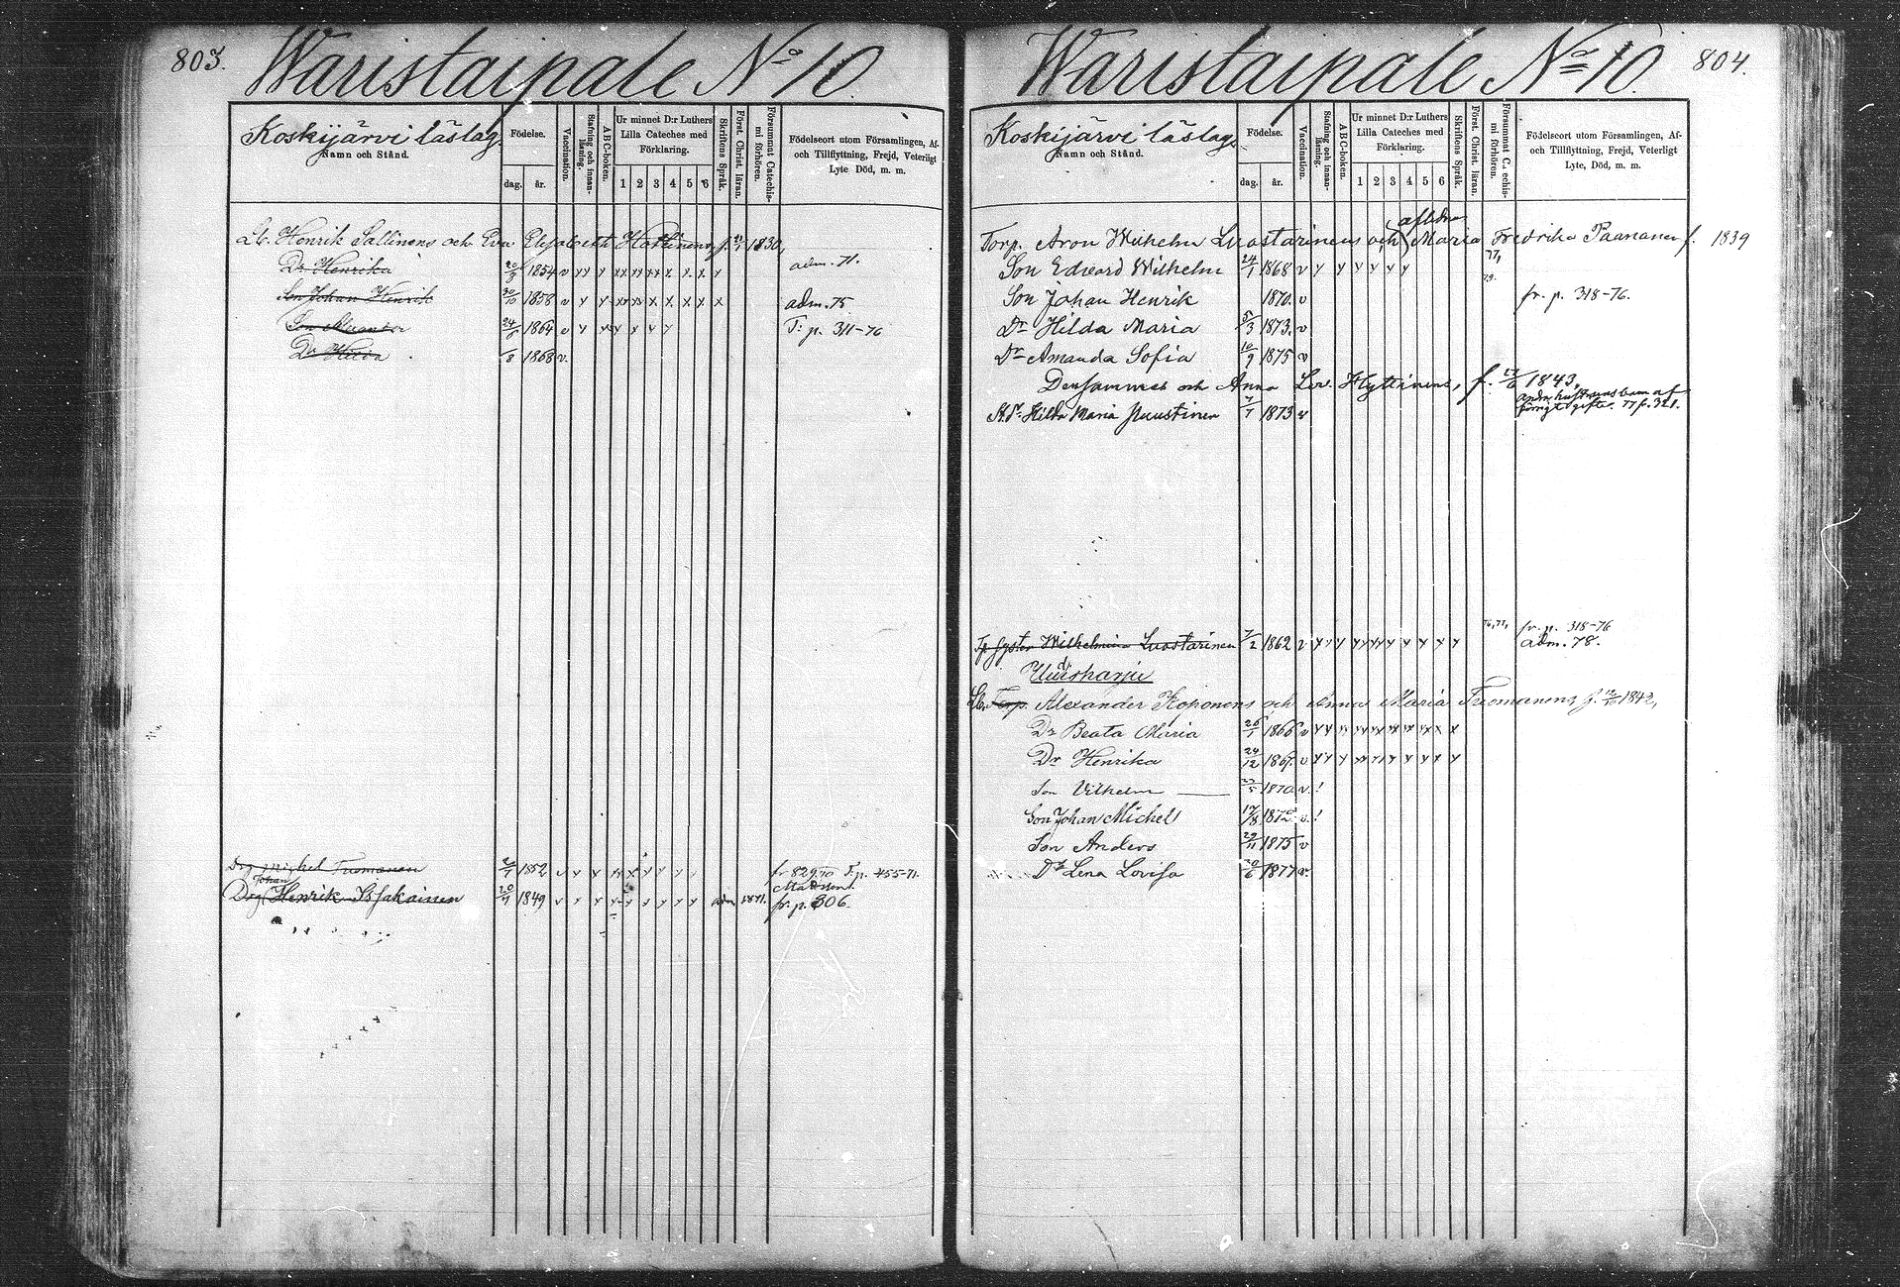 803.
Waristaipale No 10.
Koskijärvi läslag.
Namn och Stånd.
Födelse.
dag.
år.
Vaccination.
Stafning och innan-läsning.
A B C-boken.
Ur minnet D:r Luthers
Lilla Cateches med
Förklaring.
1 2 3 4 5 6
Skriftens Språk.
Först. Christ. läran.
Försummat Catechis-mi förhören.
Födelseort utom Församlingen, Af-
och Tillflyttning, Frejd, Veterligt
Lyte Död, m. m.
Lb. Henrik Sallinens och Eva Elisabeth f. 1830,
Dr Henrika 20/3 1854 v adm. 71.
Son Johan Henrik 30/10 1858 v adm. 75
Son 1864 v T. p. 311-76
Dr Hilda /8 1868 v.
Drg Michel Tuomanen 1852 fr 829, 70 T. p. 455-71.
Johan
Drg Henrik 1849 adm 1871. fr. p. 306.
804.
Waristaipale No 10.
Koskijärvi läslag.
Namn och Stånd.
Födelse.
dag.
år.
Vaccination.
Stafning och innan-läsning.
A B C-boken.
Ur minnet D:r Luthers
Lilla Cateches med
Förklaring.
1 2 3 4 5 6
Skriftens Språk.
Först. Christ. läran.
Försummat C. echis-mi förhören.
Födelseort utom Församlingen, Af-
och Tillflyttning, Frejd, Veterligt
Lyte, Död, m. m.
aflidna
Torp. Aron Wilhelm Luostarinens och Maria Fredrika Paananen f. 1839
Son Edvard Wilhelm 24/1 1868 v 77,
79.
Son Johan Henrik 1870. v fr. p. 318-76.
Dr Hilda Maria 5/3 1873. v
Dr Amanda Sofia 10/9 1875 v
Densammes och Anna Lov. Hyttinens, f. 1843,
St. Dr. Hilda Maria Puustinen 7/7 1873 v
76, 77, fr. p. 318-76
Tp. Syster Wilhelmina Luostarinen 7/2 1862 v adm. 78.
Uudisharju
Lb. Torp. Alexander Koponens och Anna Maria Tuomanens f. 1842,
Dr Beata Maria 26/1 1866 v
Dr Henrika 24/12 1867. v
Son Vilhelm 23/5 1870 v. !
Son Johan Michel 17/8 1872 v. !
Son Anders 29/11 1875 v
Dr Lena Lovisa 20/6 1877 v.